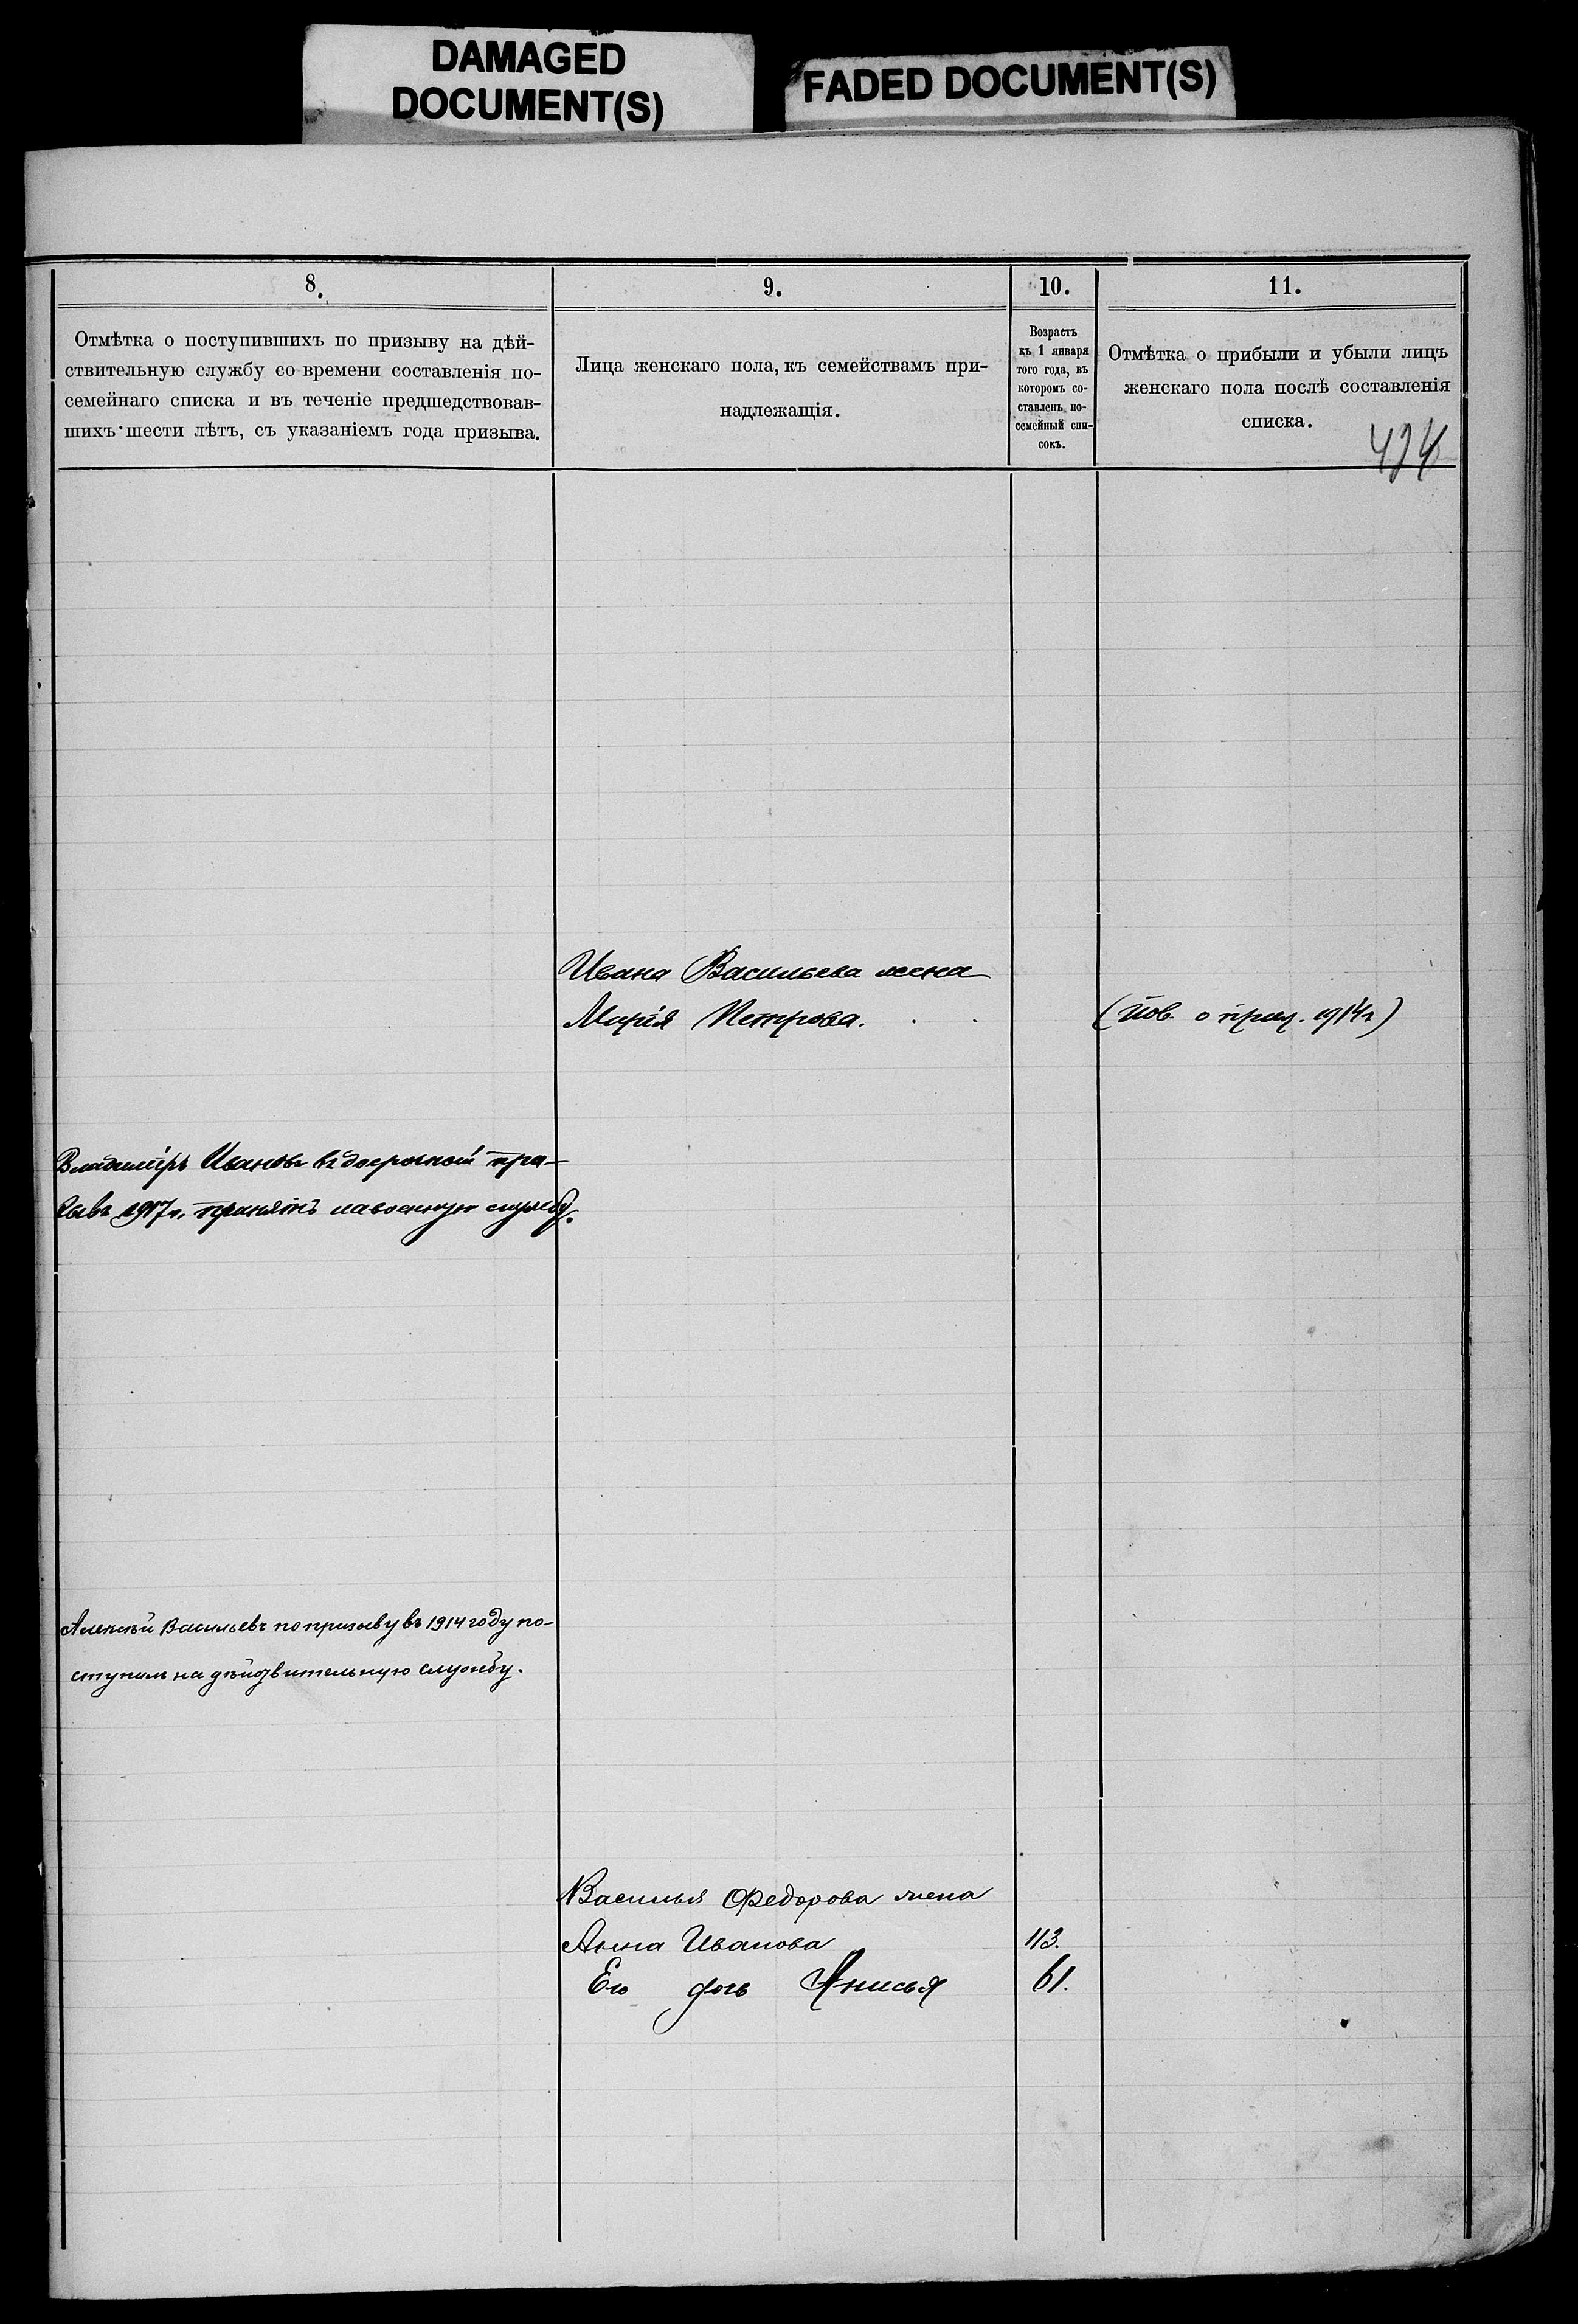 DAMAGED
DOCUMENT(S)
FADED DOCUMENT(S)
8.
Отмѣтка о поступившихъ по призыву на дѣй-
ствительную службу со времени составленія по-
семейнаго списка и въ теченіе предшедствовав-
шихъ шести лѣтъ, съ указаніемъ года призыва.
9.
Лица женскаго пола, къ семействамъ при-
надлежащія.
10.
Возрастъ
къ 1 января
того года, въ
которомъ со-
ставленъ по-
семейный спи-
сокъ.
11.
Отмѣтка о прибыли и убыли лицъ
женскаго пола послѣ составленія
списка.
Ивана Васильева жена
Марія Петрова.
о 1914г)
Владиміръ Ивановъ въ досрочный при-
зывъ 1917г. принятъ на военную службу.
Алексѣй Васильевъ по призыву въ 1914 году по-
ступилъ на дѣйствительную службу.
Василья Федорова жена
Анна Иванова 43.
Его дочь Анисья 61.